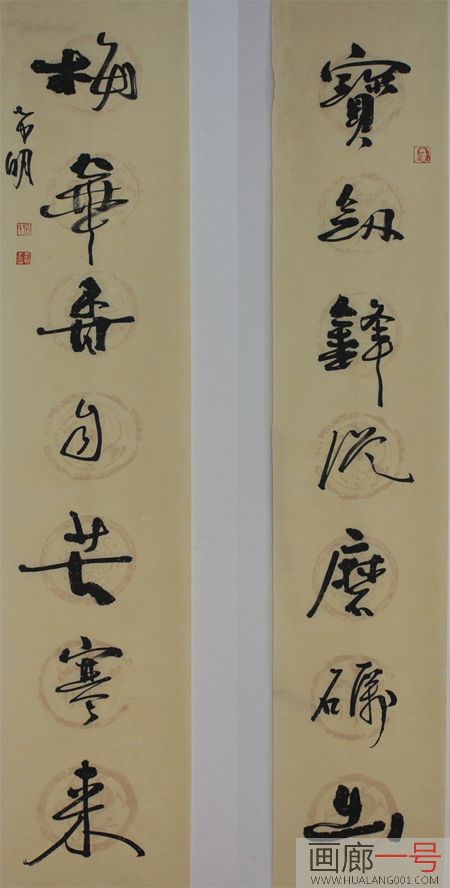 寶劍鋒從磨礪出
梅華香自苦寒来
画廊一号
WWW.HUALANG001.COM